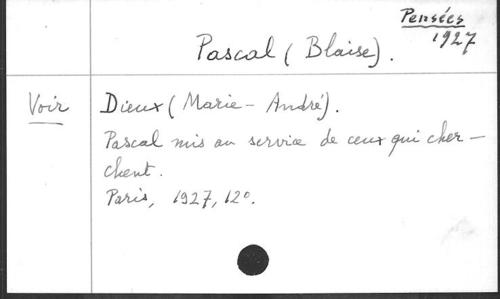 Pensées
1927
Pascal (Blaise).
Voir Dieux (Marie-André).
Pascal mis au service de ceux qui cher-
chent.
Paris, 1927, 12º.